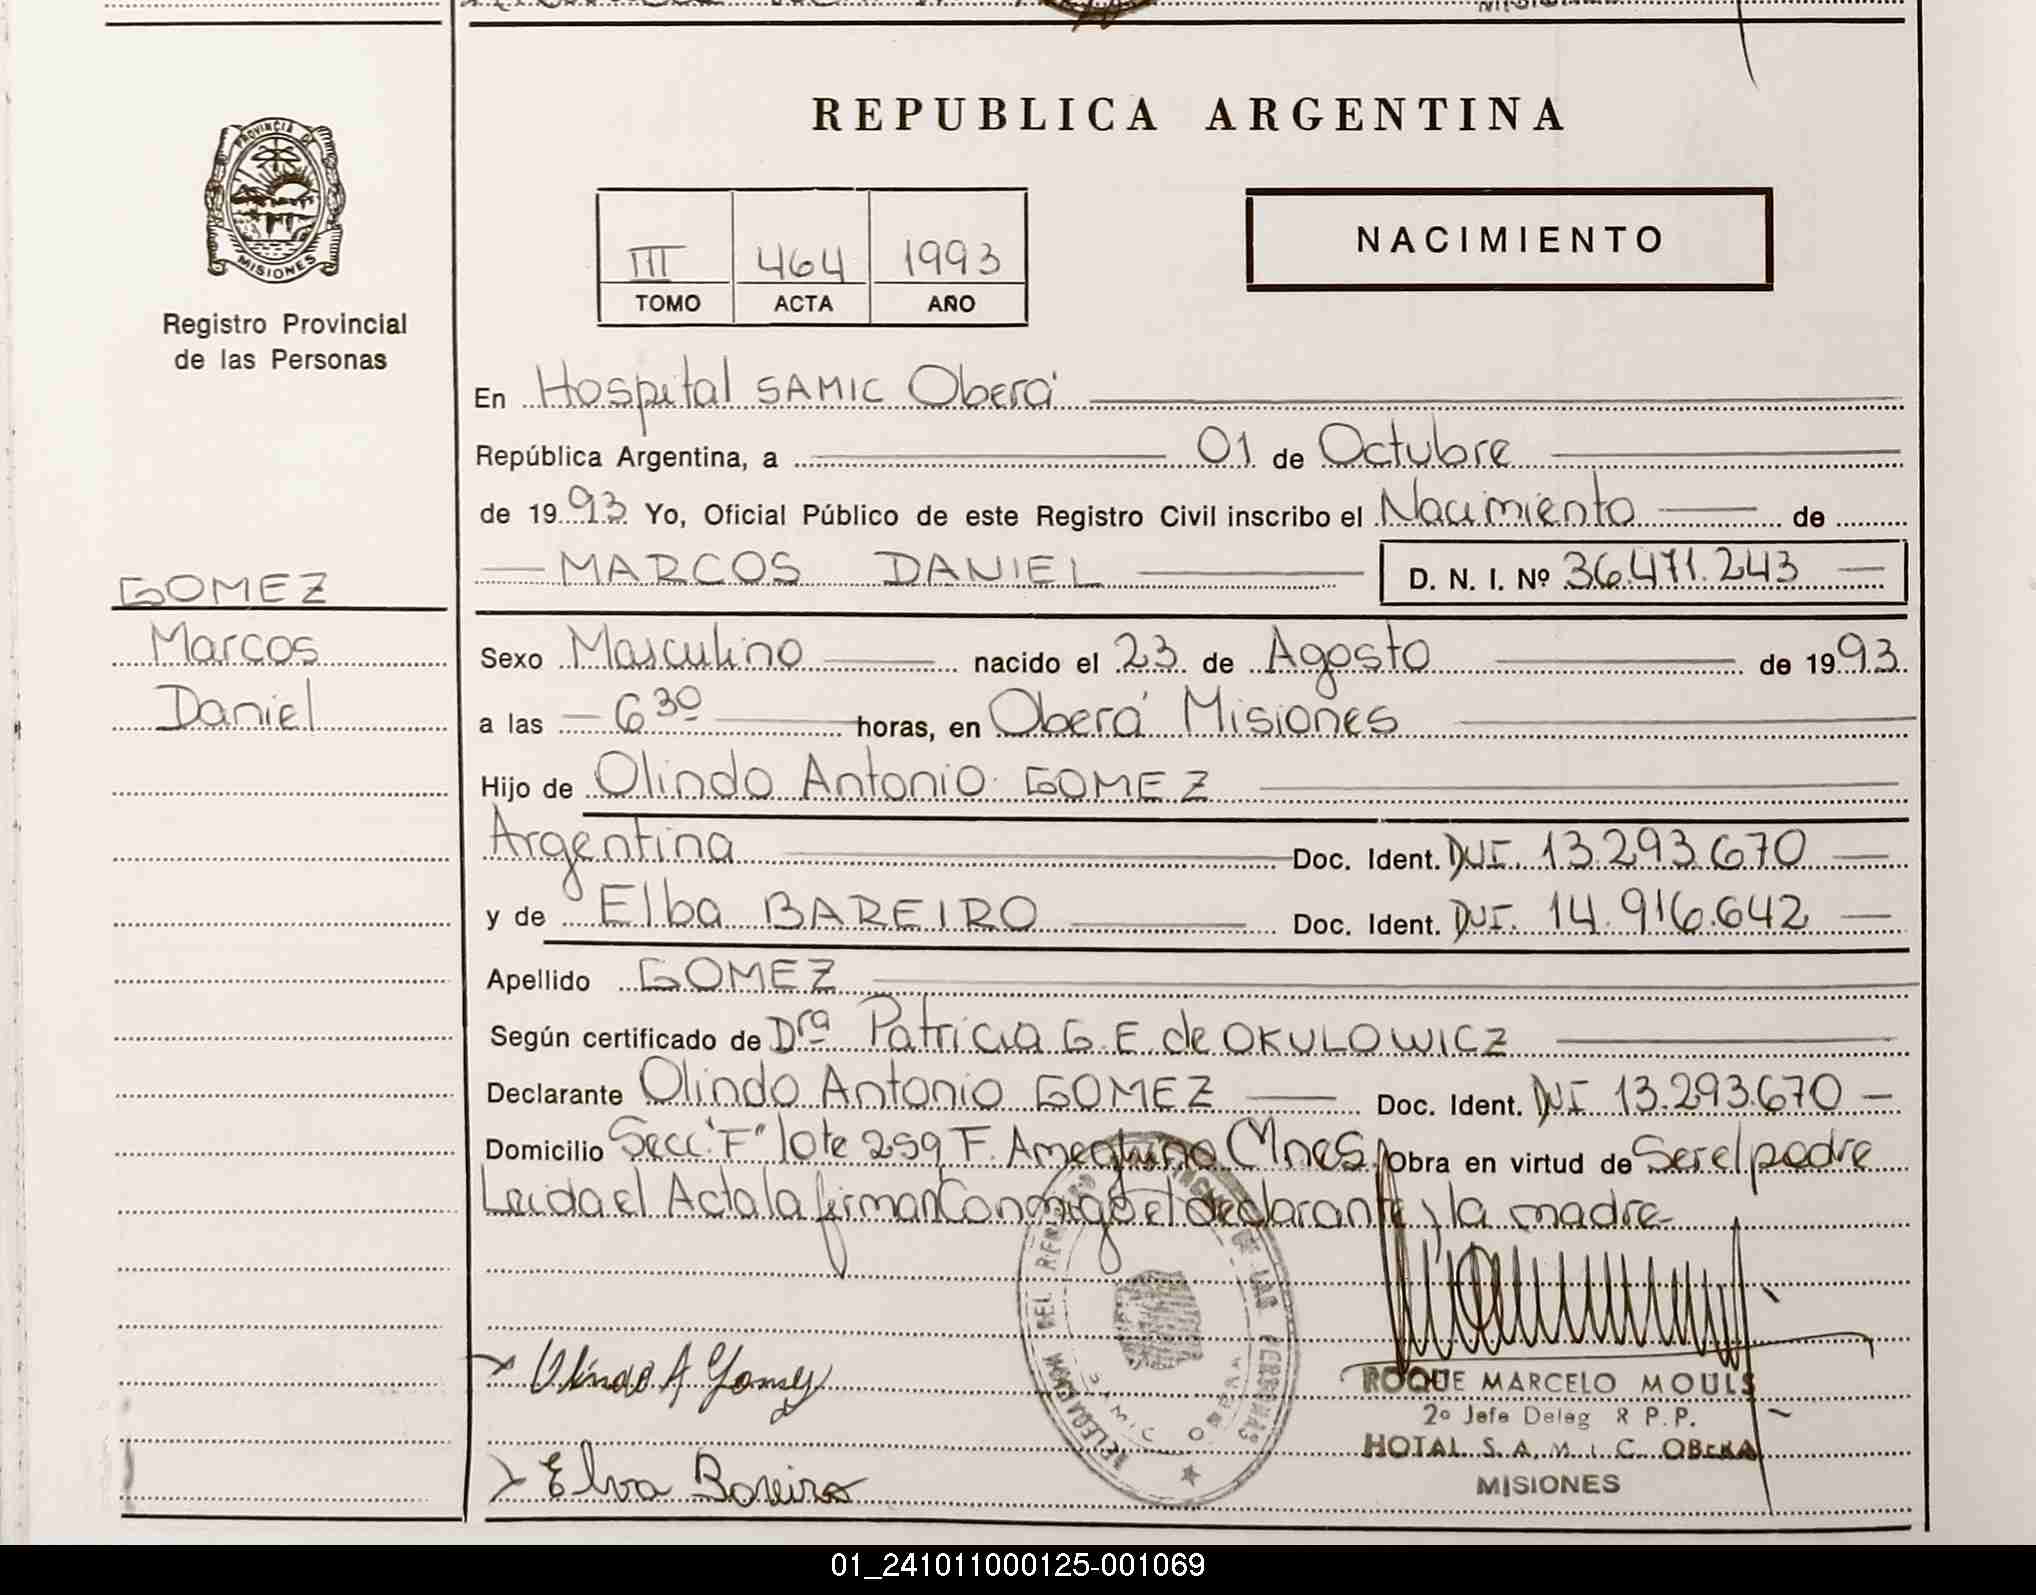 REPUBLICA ARGENTINA
PROVINCIA DE
MISIONES
Registro Provincial
de las Personas
III 464 1993
TOMO ACTA AÑO
NACIMIENTO
En Hospital SAMIC Oberá
República Argentina, a 01 de Octubre
de 1993 Yo, Oficial Público de este Registro Civil inscribo el Nacimiento de
MARCOS DANIEL D. N. I. Nº 36.471.243
GOMEZ
Marcos
Daniel
Sexo Masculino nacido el 23 de Agosto de 1993
a las 6 30 horas, en Oberá Misiones
Hijo de Olindo Antonio GOMEZ
Argentina Doc. Ident. DNI. 13.293.670
y de Elba BAREIRO Doc. Ident. DNI. 14.916.642
Apellido GOMEZ
Según certificado de Dra Patricia G. E de OKULOWICZ
Declarante Olindo Antonio GOMEZ Doc. Ident. DNI 13.293.670
Domicilio Secc. "F" lote 259 F. Ameghino Mnes. Obra en virtud de Ser el padre
Leida el Acta la firman Conmigo el declarante y la madre
Olindo A Gomez
Elva Bareiro
DELEGACION DEL REGISTRO DE LAS PERSONAS
SAMIC OBERA
ROQUE MARCELO MOULS
2º Jefe Deleg R P.P.
HOTAL S.A.M.I.C. OBERA
MISIONES
01_241011000125-001069